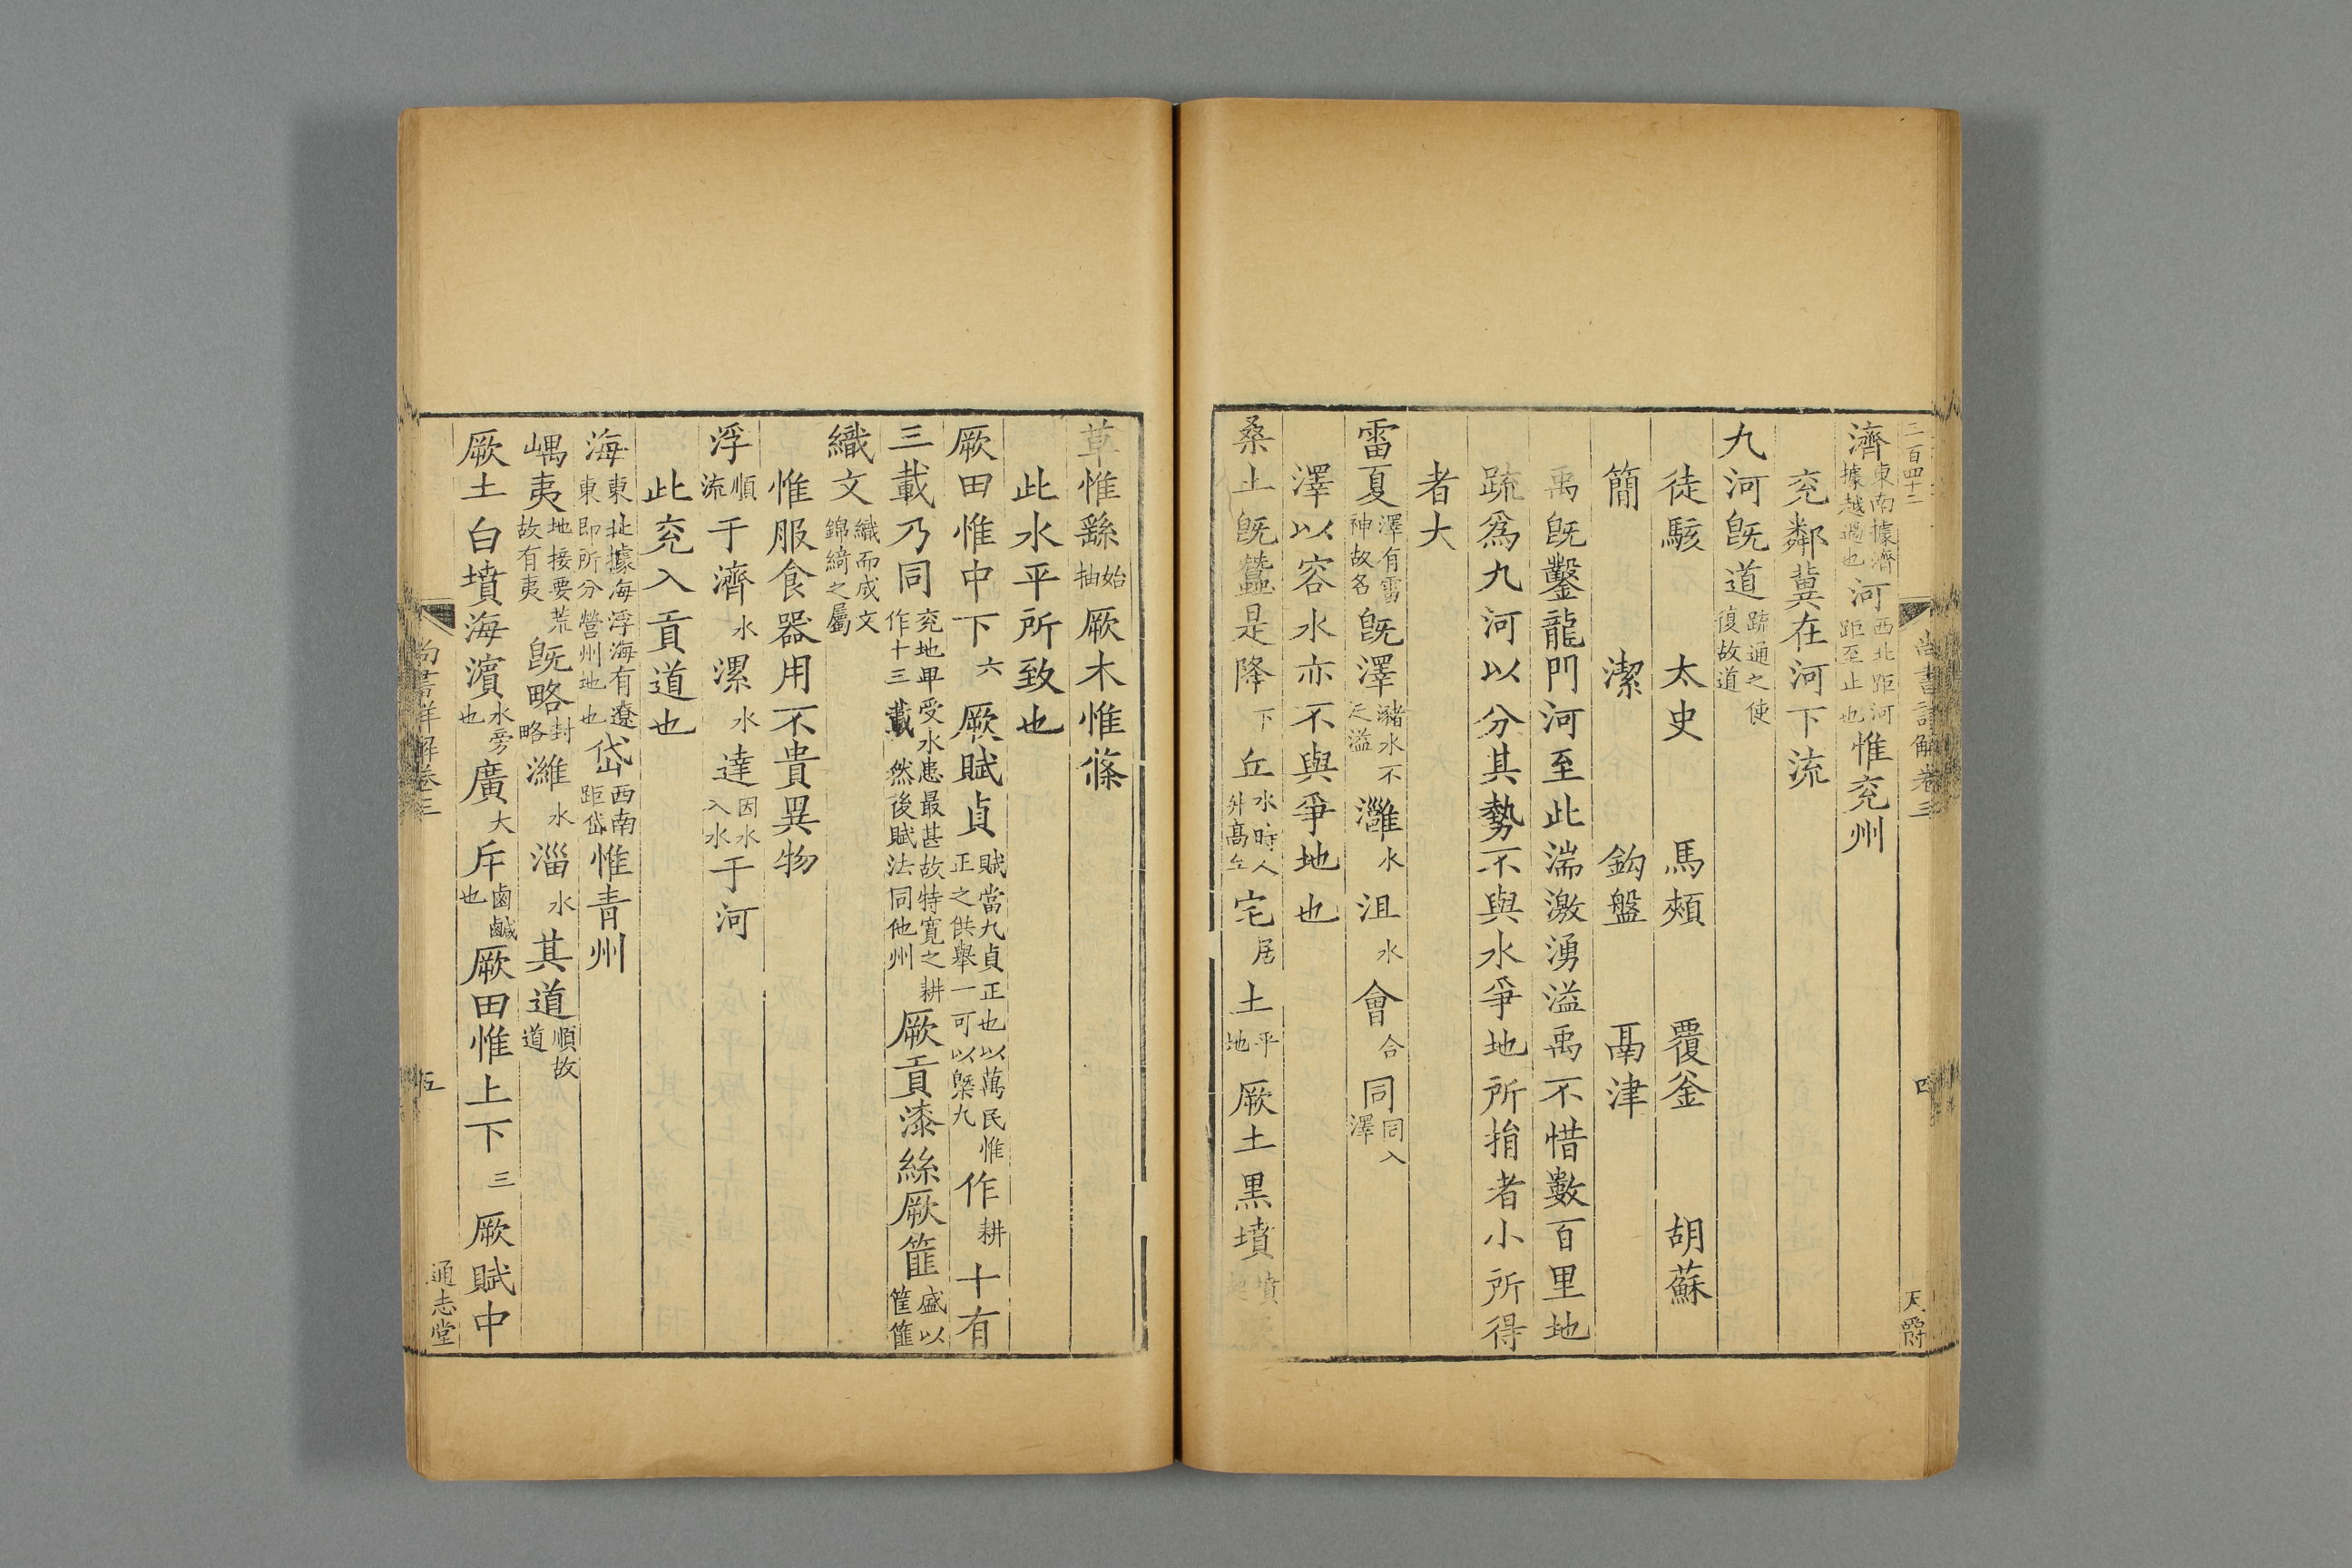 二百四十二
尚書詳解卷三
四
天爵
濟東南據濟據越過也河西北距河距至止也惟兖州
兖鄰冀在河下流
九河旣道疏通之使復故道
徒駭 太史 馬頰 覆釜 胡蘇
簡 潔 鈎盤 鬲津
禹旣鑿龍門河至此湍激湧溢禹不惜數百里地
疏爲九河以分其勢不與水爭地所捐者小所得
者大
雷夏澤有雷神故名旣澤瀦水不泛溢灉水沮水會合同同入澤
澤以容水亦不與爭地也
桑土旣蠶是降下丘水時人升高丘宅居土平地厥土黑墳墳起
草惟繇始抽厥木惟條
此水平所致也
厥田惟中下六厥賦貞賦當九貞正也以萬民惟正之供舉一可以槩九作耕十有
三載乃同兖地卑受水患最甚故特寬之耕作十三載然後賦法同他州厥貢漆絲厥篚盛以筐篚
織文織而成文錦綺之屬
惟服食器用不貴異物
浮順流于濟水漯水達因水入水于河
此兖入貢道也
海東北據海浮海有遼東即所分營州地也岱西南距岱惟青州
嵎夷地接要荒故有夷旣略封略濰水淄水其道順故道
厥土白墳海濱水旁也廣大斥鹵鹹也厥田惟上下三厥賦中
尚書詳解卷三
五
通志堂